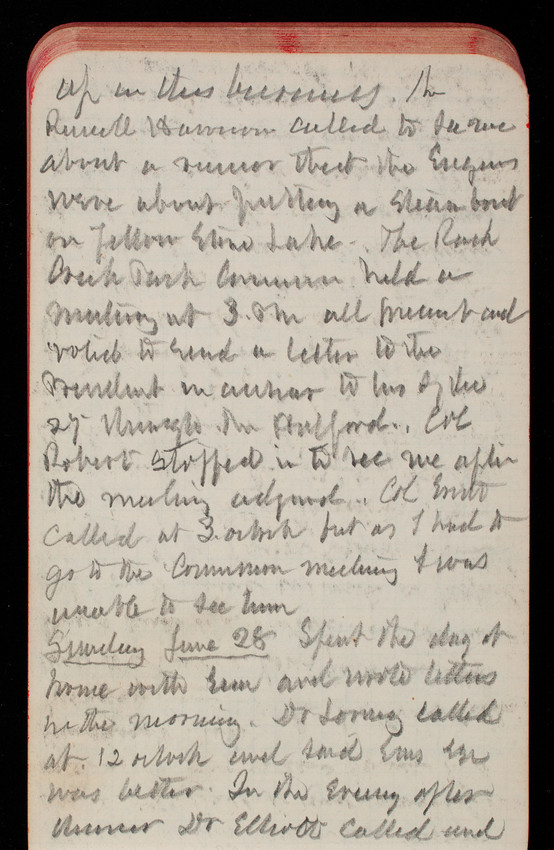 up in this business. Mr
Russell Harrison called to see me
about a rumor that the Engrs
were about putting a steam boat
on Yellow Stone Lake. The Rock
Creek Park Commission held a
meeting at 3. PM all present and
voted to send a letter to the
President in answer to his of the
25 through Mr Halford. Col
Robert stopped in to see me after
the meeting adjourned. Col Ernst
called at 3 oclock but as I had to
go to the Commission meeting I was
unable to see him
Sunday June 28 Spent the day at
home with Em and wrote letters
in the morning. Dr Loring called
at 12 oclock and said Ems Eye
was better. In the Evening after
dinner Dr Elliott called and